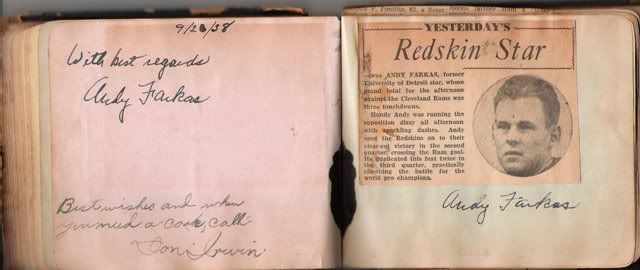 9/26/38
With best regards
Andy Farkas
Best wishes and when
you need a cook, call
Don Irwin
YESTERDAY'S
Redskin Star
—was ANDY FARKAS, former
University of Detroit star, whose
grand total for the afternoon
against the Cleveland Rams was
three touchdowns.
Handy Andy was running the
opposition dizzy all afternoon
with sparkling dashes. Andy
sped the Redskins on to their
clear-cut victory in the second
quarter, crossing the Ram goal.
He duplicated this feat twice in
the third quarter, practically
clinching the battle for the
world pro champions.
Andy Farkas